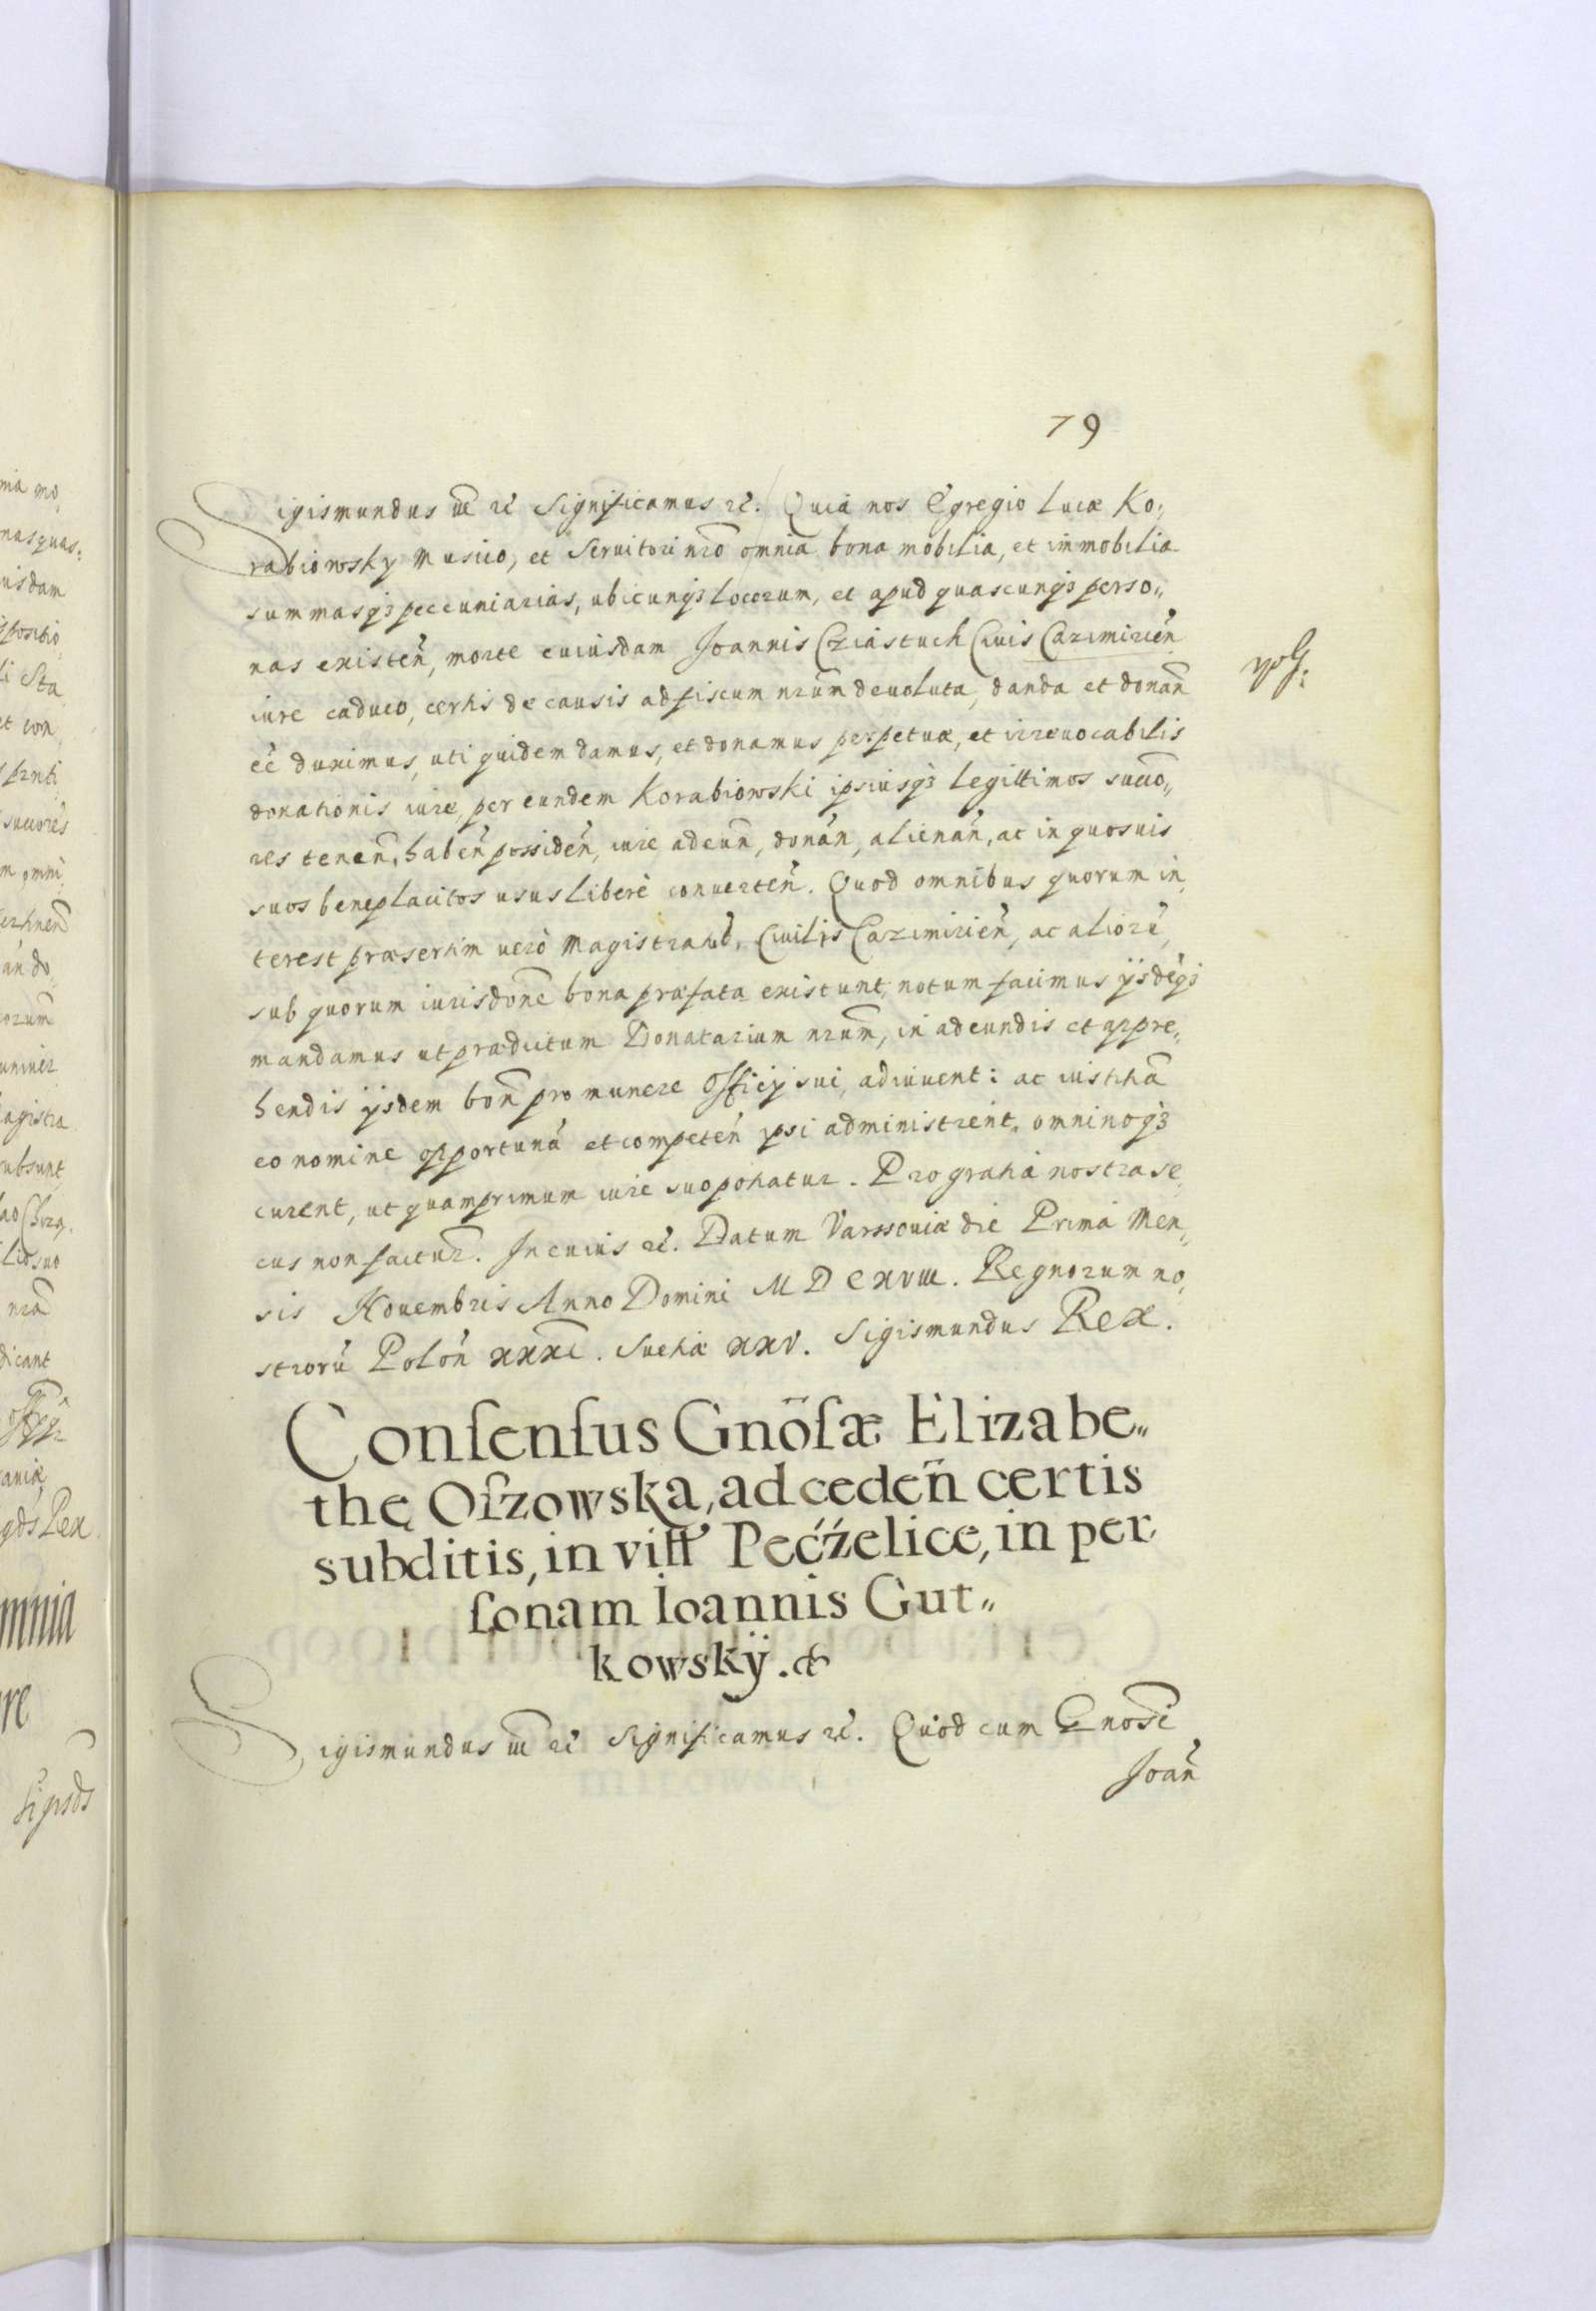 79
Sigismundus iii etc Significamus etc. Quia nos Egregio Lucæ Ko,,
rabiowsky Musico, et Seruitori nr̃o omnia bona mobilia, et immobilia
summasq3 peccuniarias, ubicunq3 locorum, et apud quascunq3 perso,,
nas existeñ, morte cuiusdam Joannis Cziastuch Ciuis Cazimirień
iure caduco, certis de causis ad fiscum nr̃um deuoluta, danda et donañ
eē duximus, uti quidem damus, et donamus perpetuæ, et irreuocabilis
donationis iure, per eundem Korabiowski ipsiusq3 legittimos succo,,
res teneñ, habeñ possideñ, iure adeuñ, donañ, alienañ, ac in quosuis
suos beneplacitos usus liberè conuerteñ. Quod omnibus quorum in,
terest præsertim uerò Magistratui Ciuili Cazimirień, ac aliorũ,
sub quorum iurisdōne bona præfata existunt, notum facimus ijsdēq3
mandamus ut prædictum Donatarium nr̃um, in adeundis et appre,,
hendis ijsdem boñ pro munere Officij sui, adiuuent: ac iustitiã
eo nomine opportunã et competeñ ipsi administrent, omninoq3
curent, ut quamprimum iure suo potiatur. Pro gratia nostra se,
cus non factur̃. In cuius etc. Datum Varssouiæ die Prima Men,
sis Nouembris Anno Domini MDCXVIII. Regnorum no,
strorũ Poloñ XXXI. Suetiæ XXV. Sigismundus Rex.
Conſenſus Gnõſæ Elizabe,,
thę Oſzowska, ad cedeñ certis
subditis, in vill Pećźelice, in per
ſonam Ioannis Gut,,
kowskÿ. &
Sigismundus iii etc Significamus etc. Quod cum Gnosi
Joañ